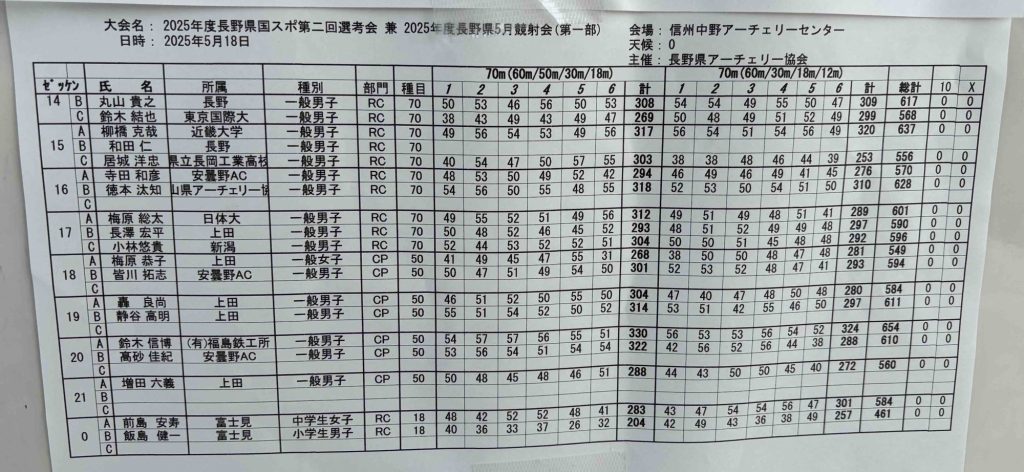 大会名： 2025年度長野県国スポ第二回選考会 兼 2025年度長野県5月競射会(第一部)
日時： 2025年5月18日
会場： 信州中野アーチェリーセンター
天候： 0
主催： 長野県アーチェリー協会
70m(60m/50m/30m/18m) 70m(60m/30m/18m/12m)
ｾﾞｯｹﾝ 氏 名 所属 種別 部門 種目 1 2 3 4 5 6 計 1 2 3 4 5 6 計 総計 10 X
14 B 丸山 貴之 長野 一般男子 RC 70 50 53 46 56 50 53 308 54 54 49 55 50 47 309 617 0 0
C 鈴木 結也 東京国際大 一般男子 RC 70 38 43 49 43 49 47 269 50 48 49 51 52 49 299 568 0 0
15 A 柳橋 克哉 近畿大学 一般男子 RC 70 49 56 54 53 49 56 317 56 54 51 54 56 49 320 637 0 0
B 和田 仁 長野 一般男子 RC 70
C 居城 洋忠 県立長岡工業高校 一般男子 RC 70 40 54 47 50 57 55 303 38 38 48 46 44 39 253 556 0 0
16 A 寺田 和彦 安曇野AC 一般男子 RC 70 48 53 50 49 52 42 294 46 49 46 49 41 45 276 570 0 0
B 徳本 汰知 山県アーチェリー協 一般男子 RC 70 54 56 50 55 48 55 318 52 53 50 54 51 50 310 628 0 0
C
17 A 梅原 総太 日体大 一般男子 RC 70 49 55 52 51 49 56 312 49 51 49 48 51 41 289 601 0 0
B 長澤 宏平 上田 一般男子 RC 70 50 48 52 46 45 52 293 48 51 52 49 49 48 297 590 0 0
C 小林悠貴 新潟 一般男子 RC 70 52 44 53 52 52 51 304 50 50 51 45 48 48 292 596 0 0
18 A 梅原 恭子 上田 一般女子 CP 50 41 49 45 47 55 31 268 38 50 50 48 47 48 281 549 0 0
B 皆川 拓志 安曇野AC 一般男子 CP 50 50 47 51 49 54 50 301 52 53 52 48 47 41 293 594 0 0
C
19 A 轟 良尚 上田 一般男子 CP 50 46 51 52 50 55 50 304 47 40 47 48 50 48 280 584 0 0
B 静谷 高明 上田 一般男子 CP 50 55 51 54 52 50 52 314 53 51 42 55 46 50 297 611 0 0
C
20 A 鈴木 信博 (有)福島鉄工所 一般男子 CP 50 54 57 54 55 54 56 330 56 53 53 56 54 52 324 654 0 0
B 高砂 佳紀 安曇野AC 一般男子 CP 50 53 56 54 51 54 54 322 42 56 52 56 44 38 288 610 0 0
C
21 A 増田 六義 上田 一般男子 CP 50 50 48 45 48 46 51 288 44 43 50 50 45 40 272 560 0 0
B
C
0 A 前島 安寿 富士見 中学生女子 RC 18 48 42 52 52 48 41 283 43 47 54 54 56 47 301 584 0 0
B 飯島 健一 富士見 小学生男子 RC 18 40 36 33 37 26 32 204 42 49 43 36 38 49 257 461 0 0
C